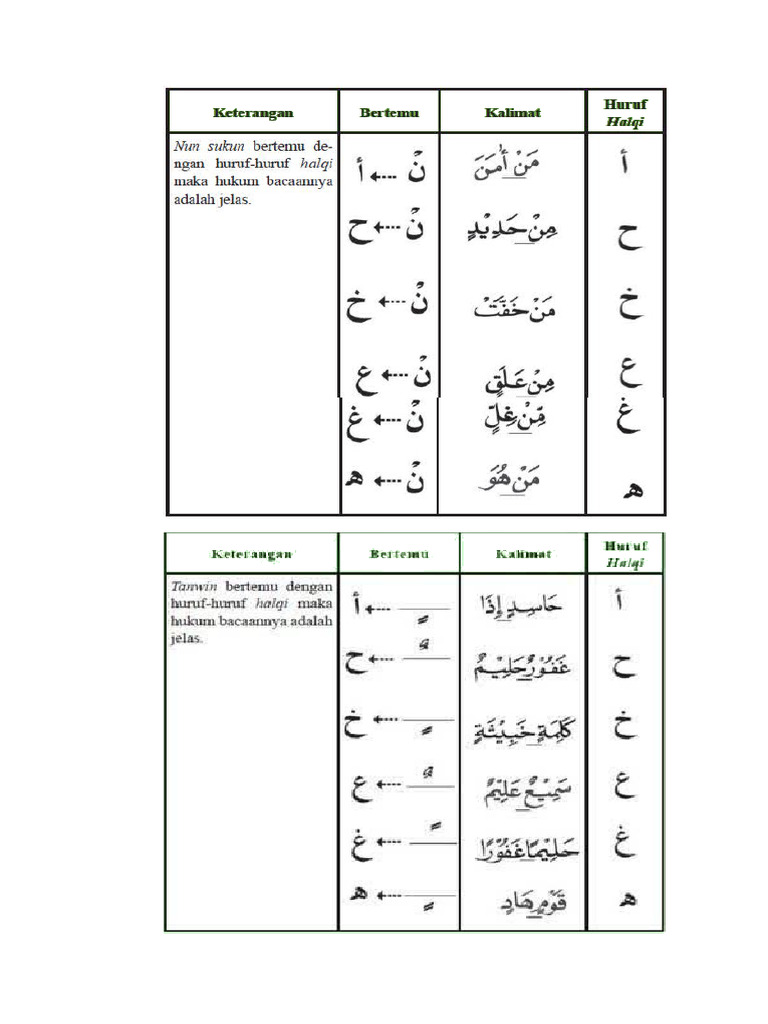 Keterangan Bertemu Kalimat Huruf
Halqi
Nun sukun bertemu de-
ngan huruf-huruf halqi
maka hukum bacaannya
adalah jelas.
نْ أ مَنْ أٰمَنَ أ
نْ ح مِنْ حَدِيْدٍ ح
نْ خ مَنْ خَفَّتْ خ
نْ ع مِنْ عَلَقٍ ع
نْ غ مِّنْ غِلٍّ غ
نْ ه مَنْ هُوَ ه
Keterangan Bertemu Kalimat Huruf
Halqi
Tanwin bertemu dengan
huruf-huruf halqi maka
hukum bacaannya adalah
jelas.
ـٍ أ حَاسِدٍ إِذَا أ
ـٌ ح غَفُوْرٌ حَلِيْمٌ ح
ـٍ خ كَلِمَةٍ خَبِيْثَةٍ خ
ـٌ ع سَمِيْعٌ عَلِيْمٌ ع
ـً غ حَلِيْمًا غَفُوْرًا غ
ـٍ ه قَوْمٍ هَادٍ ه